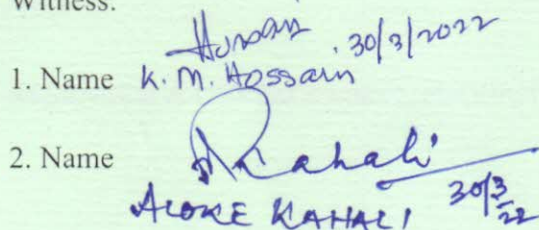 Witness:
Hossain 30/3/2022
1. Name K. M. Hossain
2. Name AKahali
ALOKE KAHALI 30/3/22